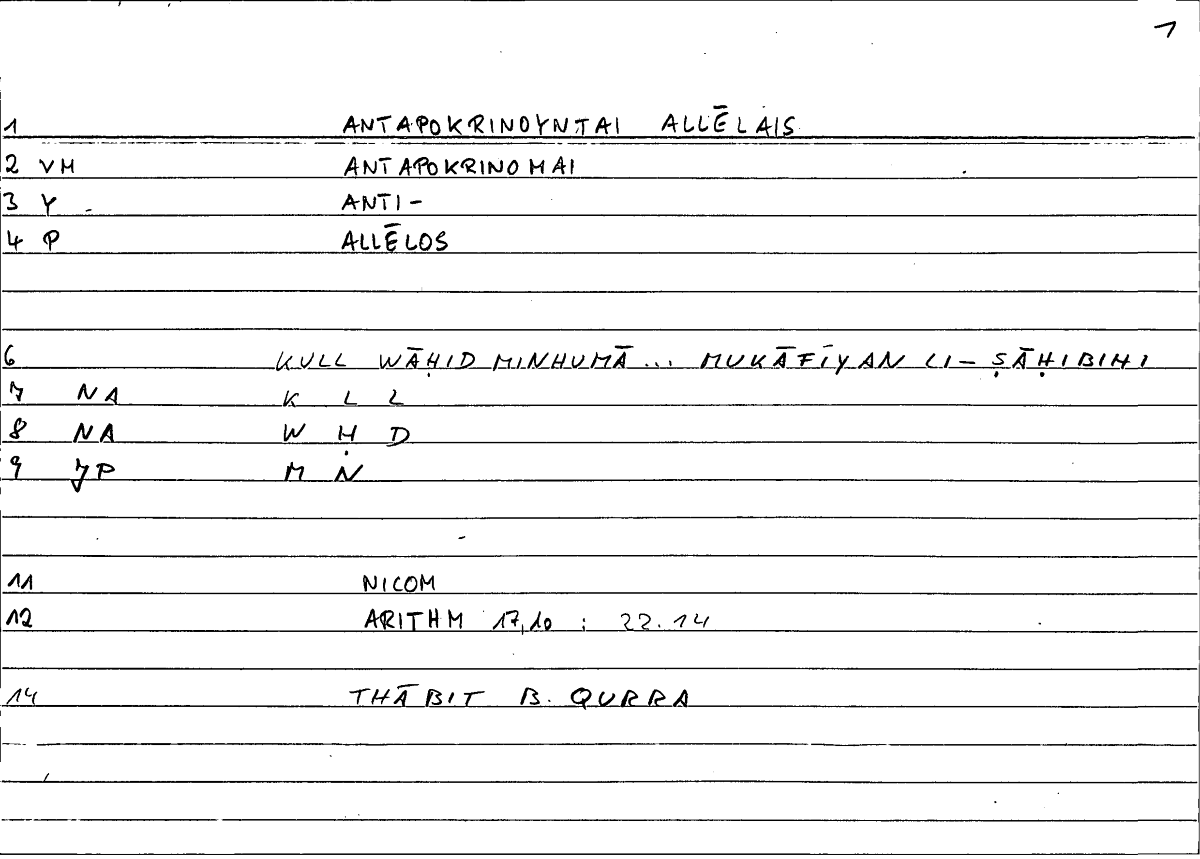 1
1 ANTAPOKRINOYNTAI ALLĒLAIS
2 VM ANTAPOKRINOMAI
3 Y ANTI-
4 P ALLĒLOS
6 KULL WĀḤID MINHUMĀ... MUKĀFĪYAN LI-ṢĀḤIBIHI
7 NA K L L
8 NA W Ḥ D
9 JP M N
11 NICOM
12 ARITHM 17,10 : 22.14
14 THĀBIT B. QURRA